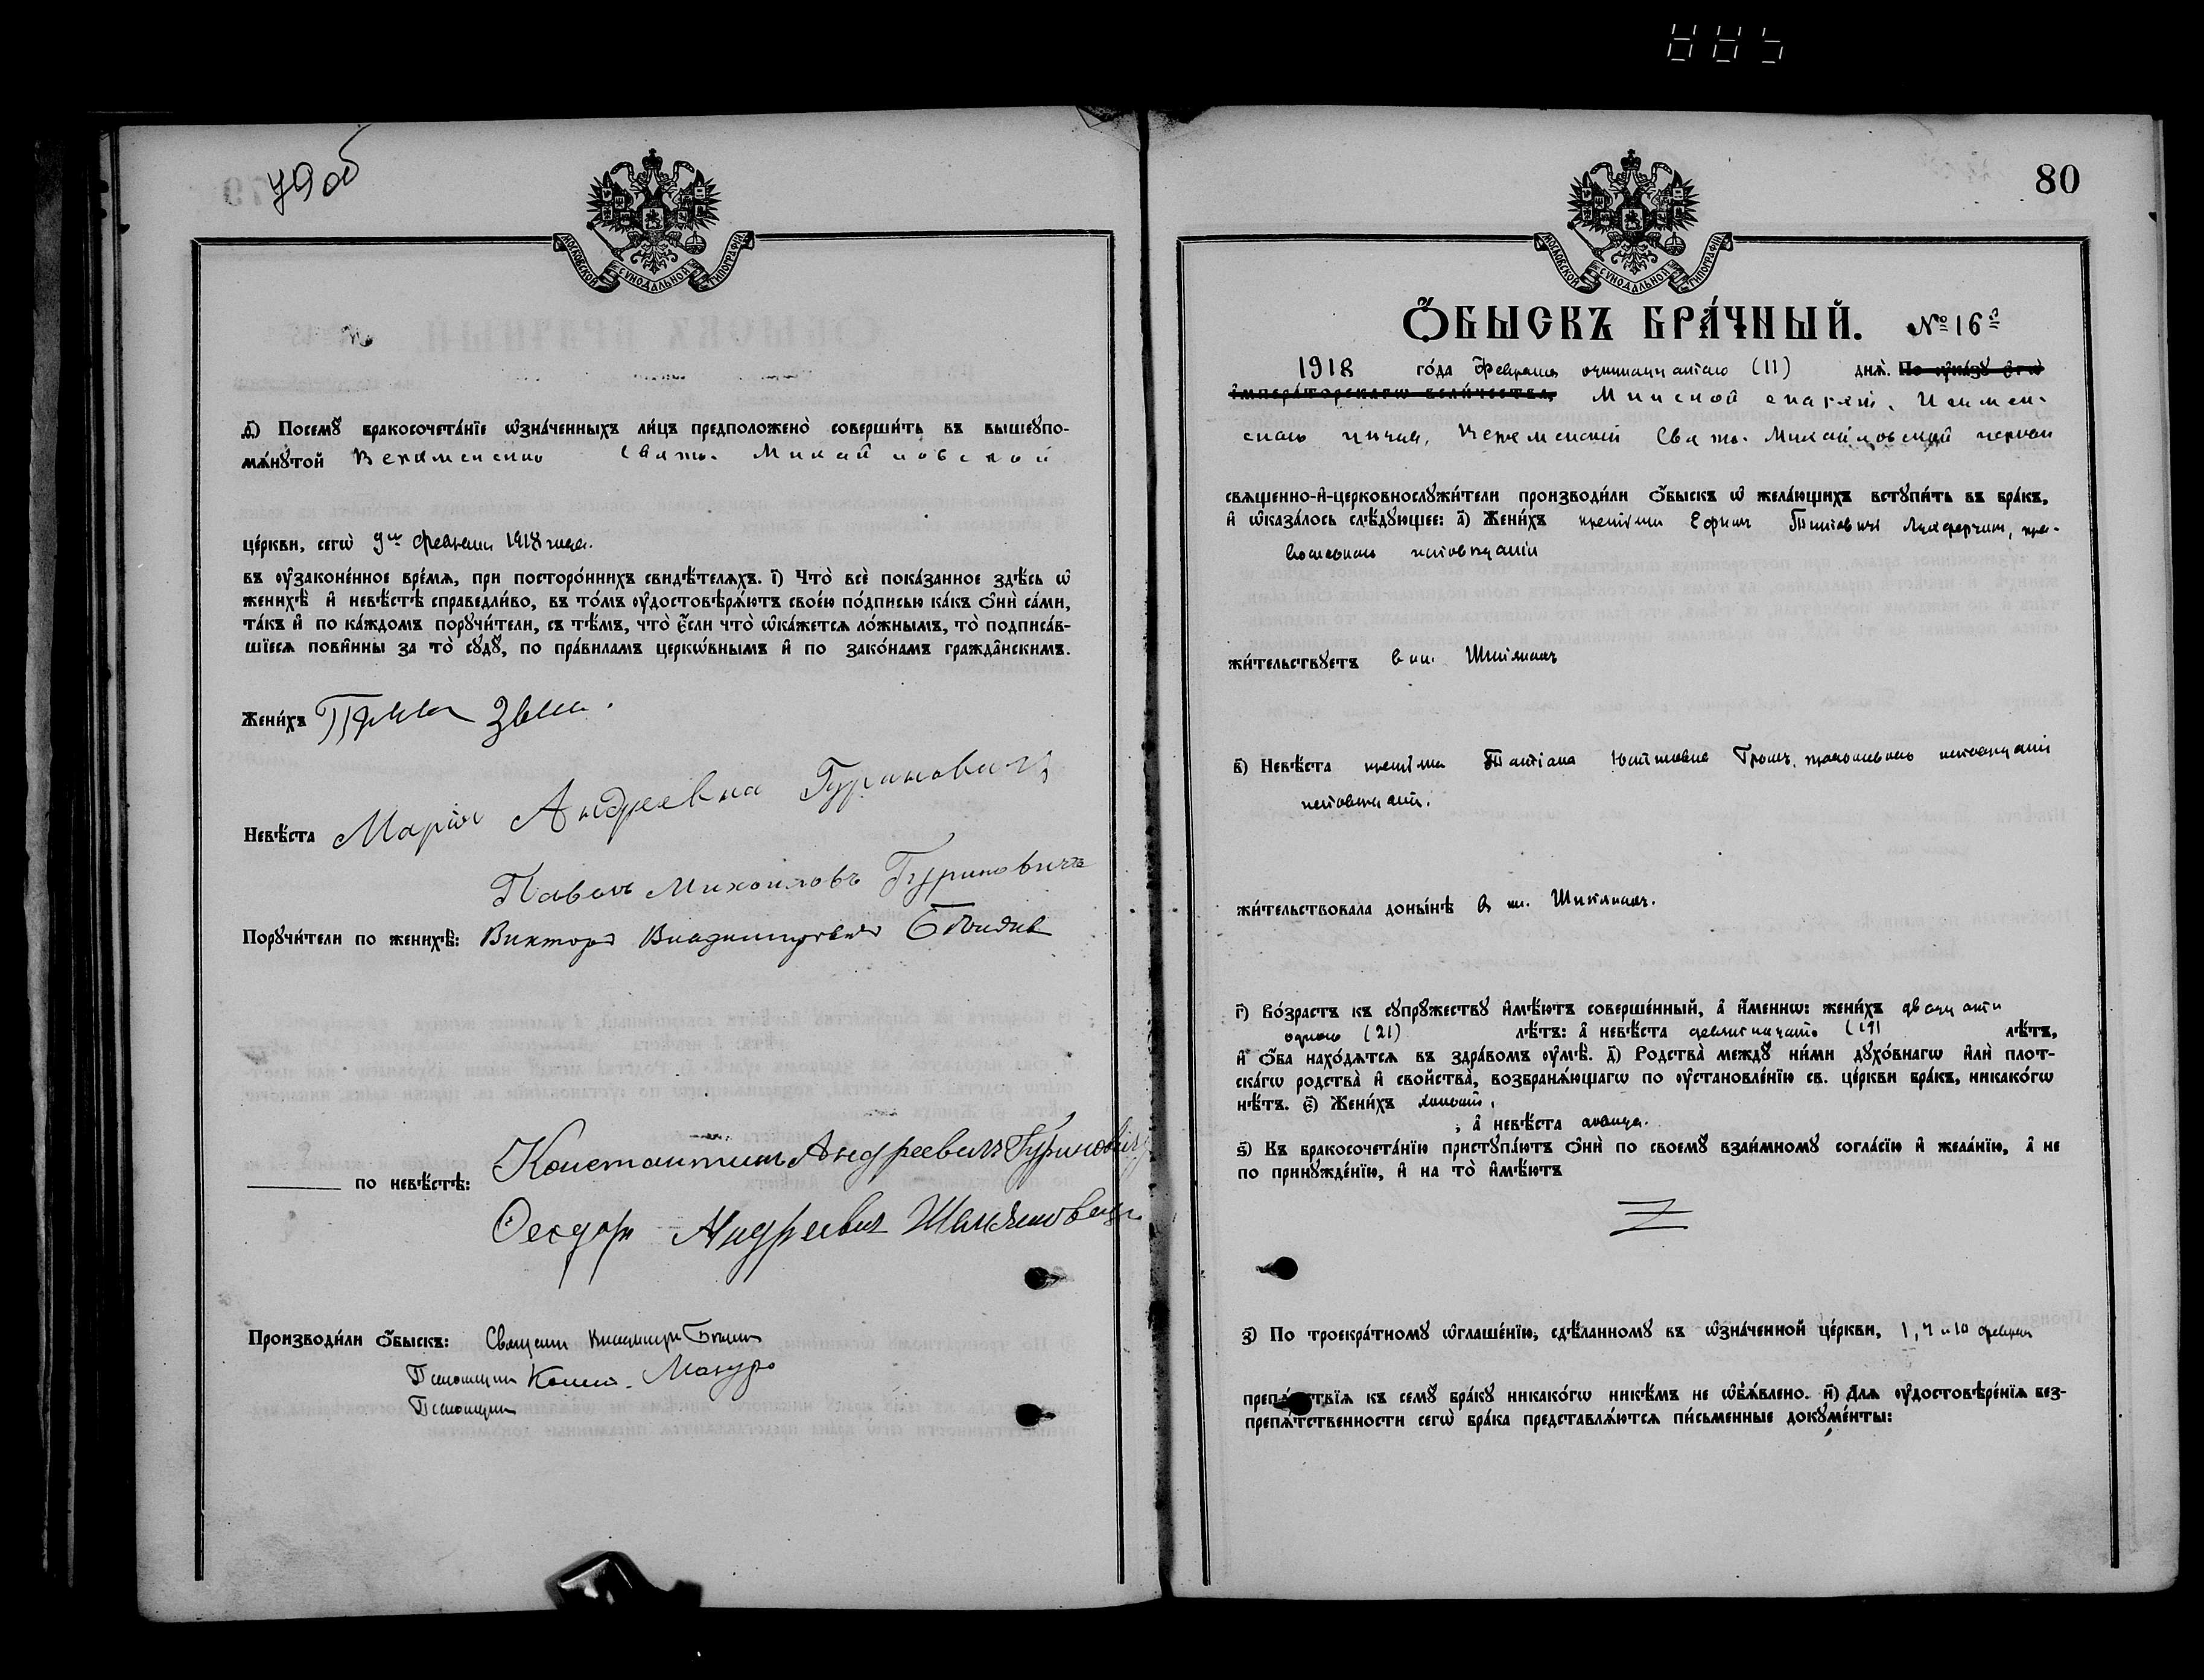 79 об
МОСКОВСКОЙ СУНОДАЛЬНОЙ ТИПОГРАФІИ.
ѳ҃) Посемꙋ̀ бракосочета́нїе ѡ҆зна́ченныхъ ли́цъ предположено̀ соверши́ть въ вышеꙋпо-
мѧ́нꙋтой Свято-Михайловской
це́ркви, сегѡ̀ 9го февраля 1918 года.
въ ᲂу҆зако́ненное вре́мѧ, при посторо́ннихъ свидѣ́телѧхъ. і҃) Что̀ всѐ пока́занное здѣ́сь ѡ҆
женихѣ̀ и҆ невѣ́стѣ справедли́во, въ то́мъ ᲂу҆достовѣрѧ́ютъ свое́ю по́дписью ка́къ ѻ҆нѝ са́ми,
та́къ и҆ по ка́ждомъ порꙋчи́тели, съ тѣ́мъ, что̀ є҆́сли что̀ ѡ҆ка́жетсѧ ло́жнымъ, то̀ подписа́в-
шїесѧ пови́нны за то̀ сꙋдꙋ̀, по пра́виламъ церкѡ́внымъ и҆ по зако́намъ гражда́нскимъ.
Жени́хъ
Невѣ́ста Марія Андреевна Гуриновичъ
Павелъ Михаиловъ Гуриновичъ
Порꙋчи́тели по женихѣ̀: Викторъ Владиміровичъ
Константинъ Андреевичъ Гуриновичъ
по невѣ́стѣ:
Ѳеодоръ Андреевич
Производи́ли ѻ҆́быскъ: Священ. Владиміръ
Псаломщик Конст. Мазуръ
Псаломщик
80
МОСКОВСКОЙ СУНОДАЛЬНОЙ ТИПОГРАФІИ.
Ѻ҆́БЫСКЪ БРА́ЧНЫЙ. № 16й
1918 го́да Февраля одиннадцатаго (11) днѧ̀. По ᲂу҆ка́зꙋ є҆гѡ̀
і҆мпера́торскагѡ вели́чества, Минской епархіи,
Свято-Михайловской церкви
свѧще́нно-и҆-церковнослꙋжи́тели производи́ли ѻ҆́быскъ ѡ҆ жела́ющихъ встꙋпи́ть въ бра́къ,
и҆ ѡ҆каза́лось слѣ́дꙋющее: а҃) Жени́хъ Ефимъ Титовичъ пра-
вославнаго исповѣданія
жи́тельствꙋетъ в
в҃) Невѣ́ста Татіана Громъ, православнаго исповѣданія
исповѣданія.
жи́тельствовала доны́нѣ в
г҃) Во́зрастъ къ сꙋпрꙋ́жествꙋ и҆мѣ́ютъ соверше́нный, а҆ и҆́меннѡ: жени́хъ двадцати
одного (21) лѣ́тъ: а҆ невѣ́ста девятнадцати (19) лѣ́тъ,
и҆ ѻ҆́ба нахо́дѧтсѧ въ здра́вомъ ᲂу҆мѣ̀. д҃) Родства̀ междꙋ̀ ни́ми дꙋхо́внагѡ и҆лѝ плот-
ска́гѡ родства̀ и҆ сво́йства̀, возбранѧ́ющагѡ по ᲂу҆становле́нїю св. це́ркви бра́къ, никако́гѡ
нѣ́тъ. є҃) Жени́хъ холостъ,
; а҆ невѣ́ста дѣвица.
ѕ҃) Къ бракосочета́нїю пристꙋпа́ютъ ѻ҆нѝ по своемꙋ̀ взаи́мномꙋ согла́сїю и҆ жела́нїю, а҆ не
по принꙋжде́нїю, и҆ на то̀ и҆мѣ́ютъ
з҃) По троекра́тномꙋ ѡ҆глаше́нїю, сдѣ́ланномꙋ въ ѡ҆зна́ченной це́ркви, 1, 4 и 10 февраля
препѧ́тствїѧ къ семꙋ̀ бра́кꙋ никако́гѡ никѣ́мъ не ѡ҆б̾ѧ́влено. и҃) Длѧ ᲂу҆достовѣре́нїѧ без-
препѧ́тственности сегѡ̀ бра́ка представлѧ́ютсѧ пи́сьменные докꙋме́нты: